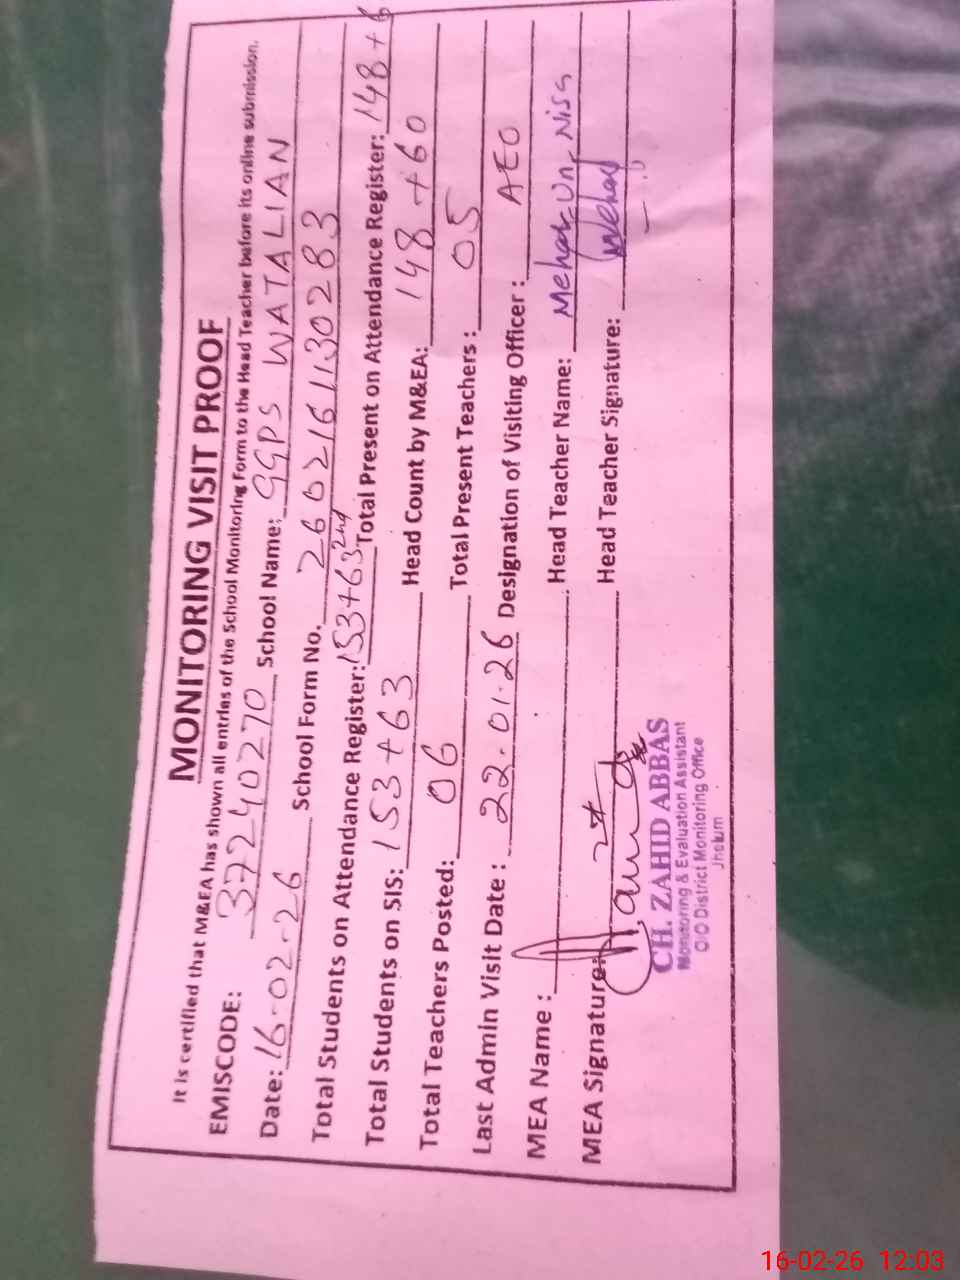 MONITORING VISIT PROOF
It is certified that M&EA has shown all entries of the School Monitoring Form to the Head Teacher before its online submission.
EMISCODE: 37240270 School Name: GGPS WATALIAN
Date: 16-02-26 School Form No. 2602161130283
Total Students on Attendance Register: 153+63 2nd Total Present on Attendance Register: 148+6
Total Students on SIS: 153+63 Head Count by M&EA: 148+60
Total Teachers Posted: 06 Total Present Teachers: 05
Last Admin Visit Date: 22.01.26 Designation of Visiting Officer: AEO
MEA Name: Head Teacher Name: Mehar-Un-Nisa
MEA Signature: Head Teacher Signature: Mehar
CH. ZAHID ABBAS
Monitoring & Evaluation Assistant
O/O District Monitoring Office
Jhelum
16-02-26 12:03